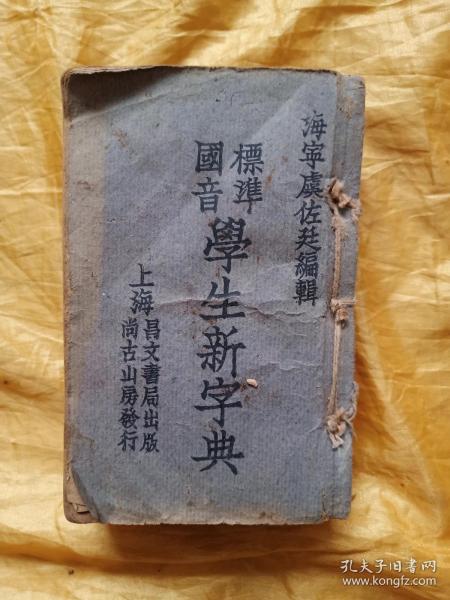 海寧虞佐廷編輯
標準
國音
學生新字典
上海
昌文書局出版
尚古山房發行
孔夫子旧书网
www.kongfz.com